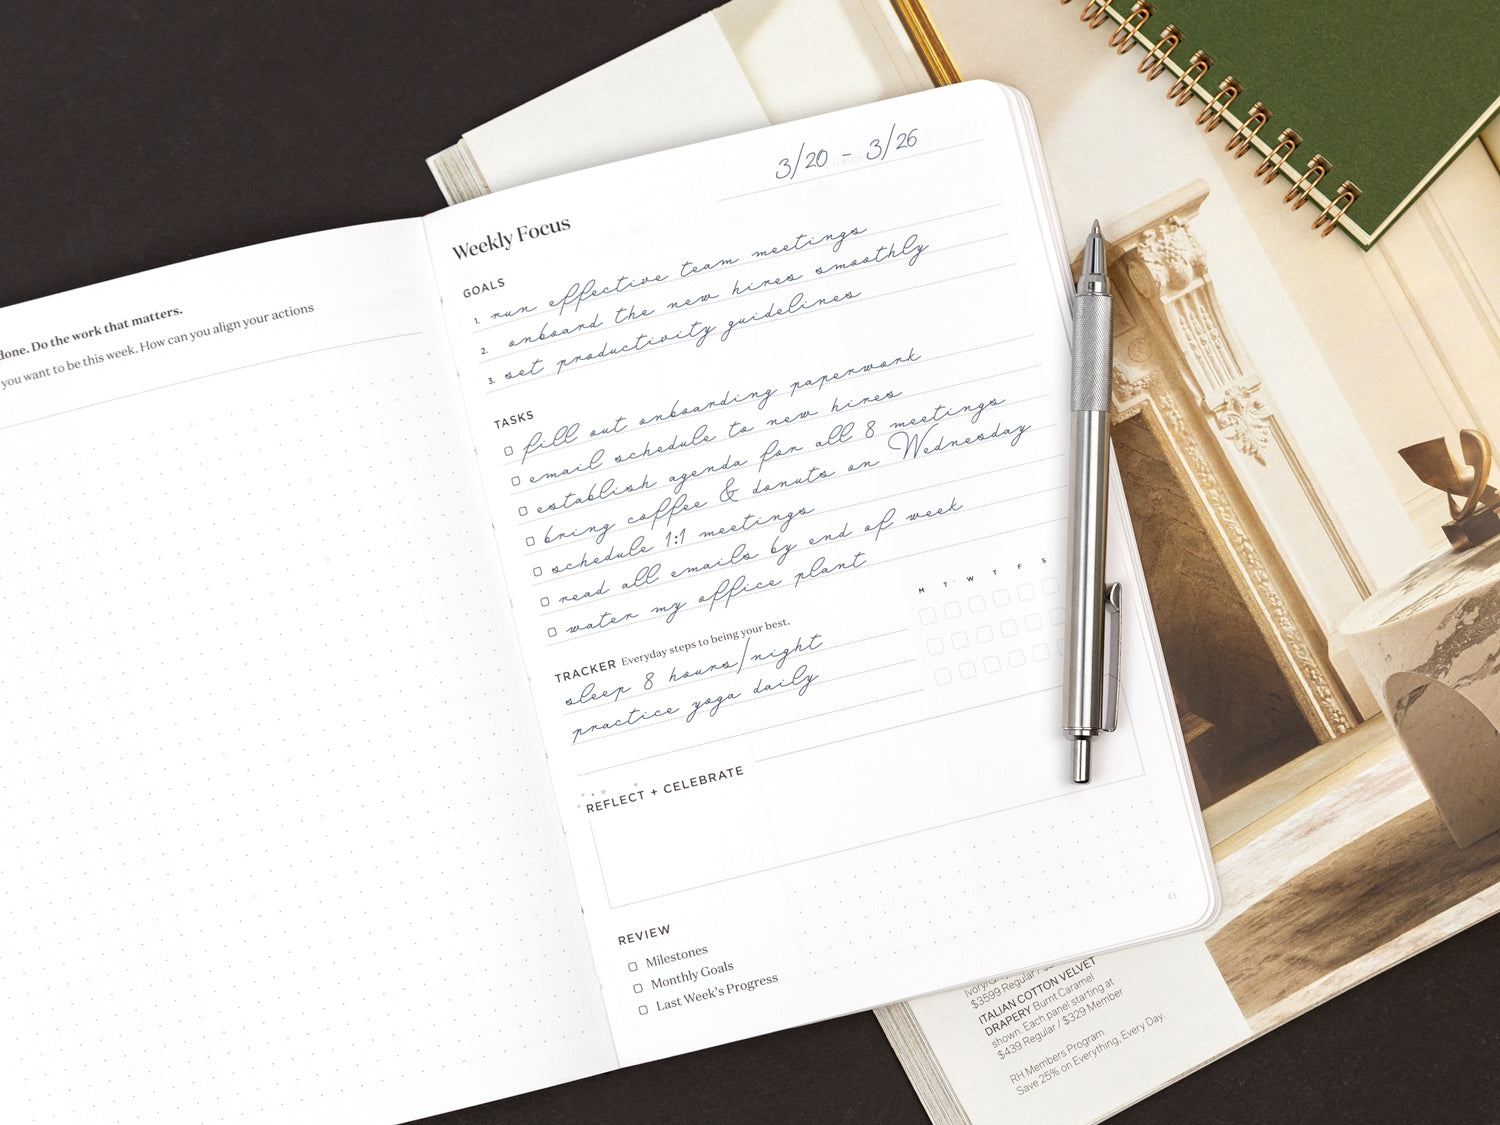 done. Do the work that matters.
you want to be this week. How can you align your actions
3/20 - 3/26
Weekly Focus
GOALS
1. run effective team meetings
2. onboard the new hires smoothly
3. set productivity guidelines
TASKS
fill out onboarding paperwork
email schedule to new hires
establish agenda for all 8 meetings
bring coffee & donuts on Wednesday
schedule 1:1 meetings
read all emails by end of week
water my office plant
M T W T F S
TRACKER Everyday steps to being your best.
sleep 8 hours/night
practice yoga daily
REFLECT + CELEBRATE
45
REVIEW
Milestones
Monthly Goals
Last Week's Progress
$3599 Regular /
ITALIAN COTTON VELVET
DRAPERY Burnt Caramel
shown. Each panel starting at
$439 Regular / $329 Member
RH Members Program.
Save 25% on Everything, Every Day.